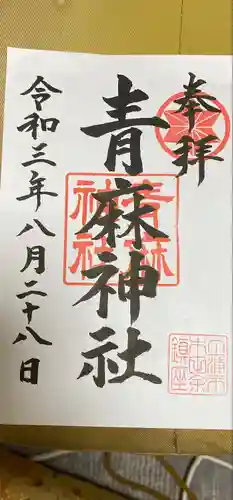 奉拝
青麻神社
令和三年八月二十八日
青麻
神社